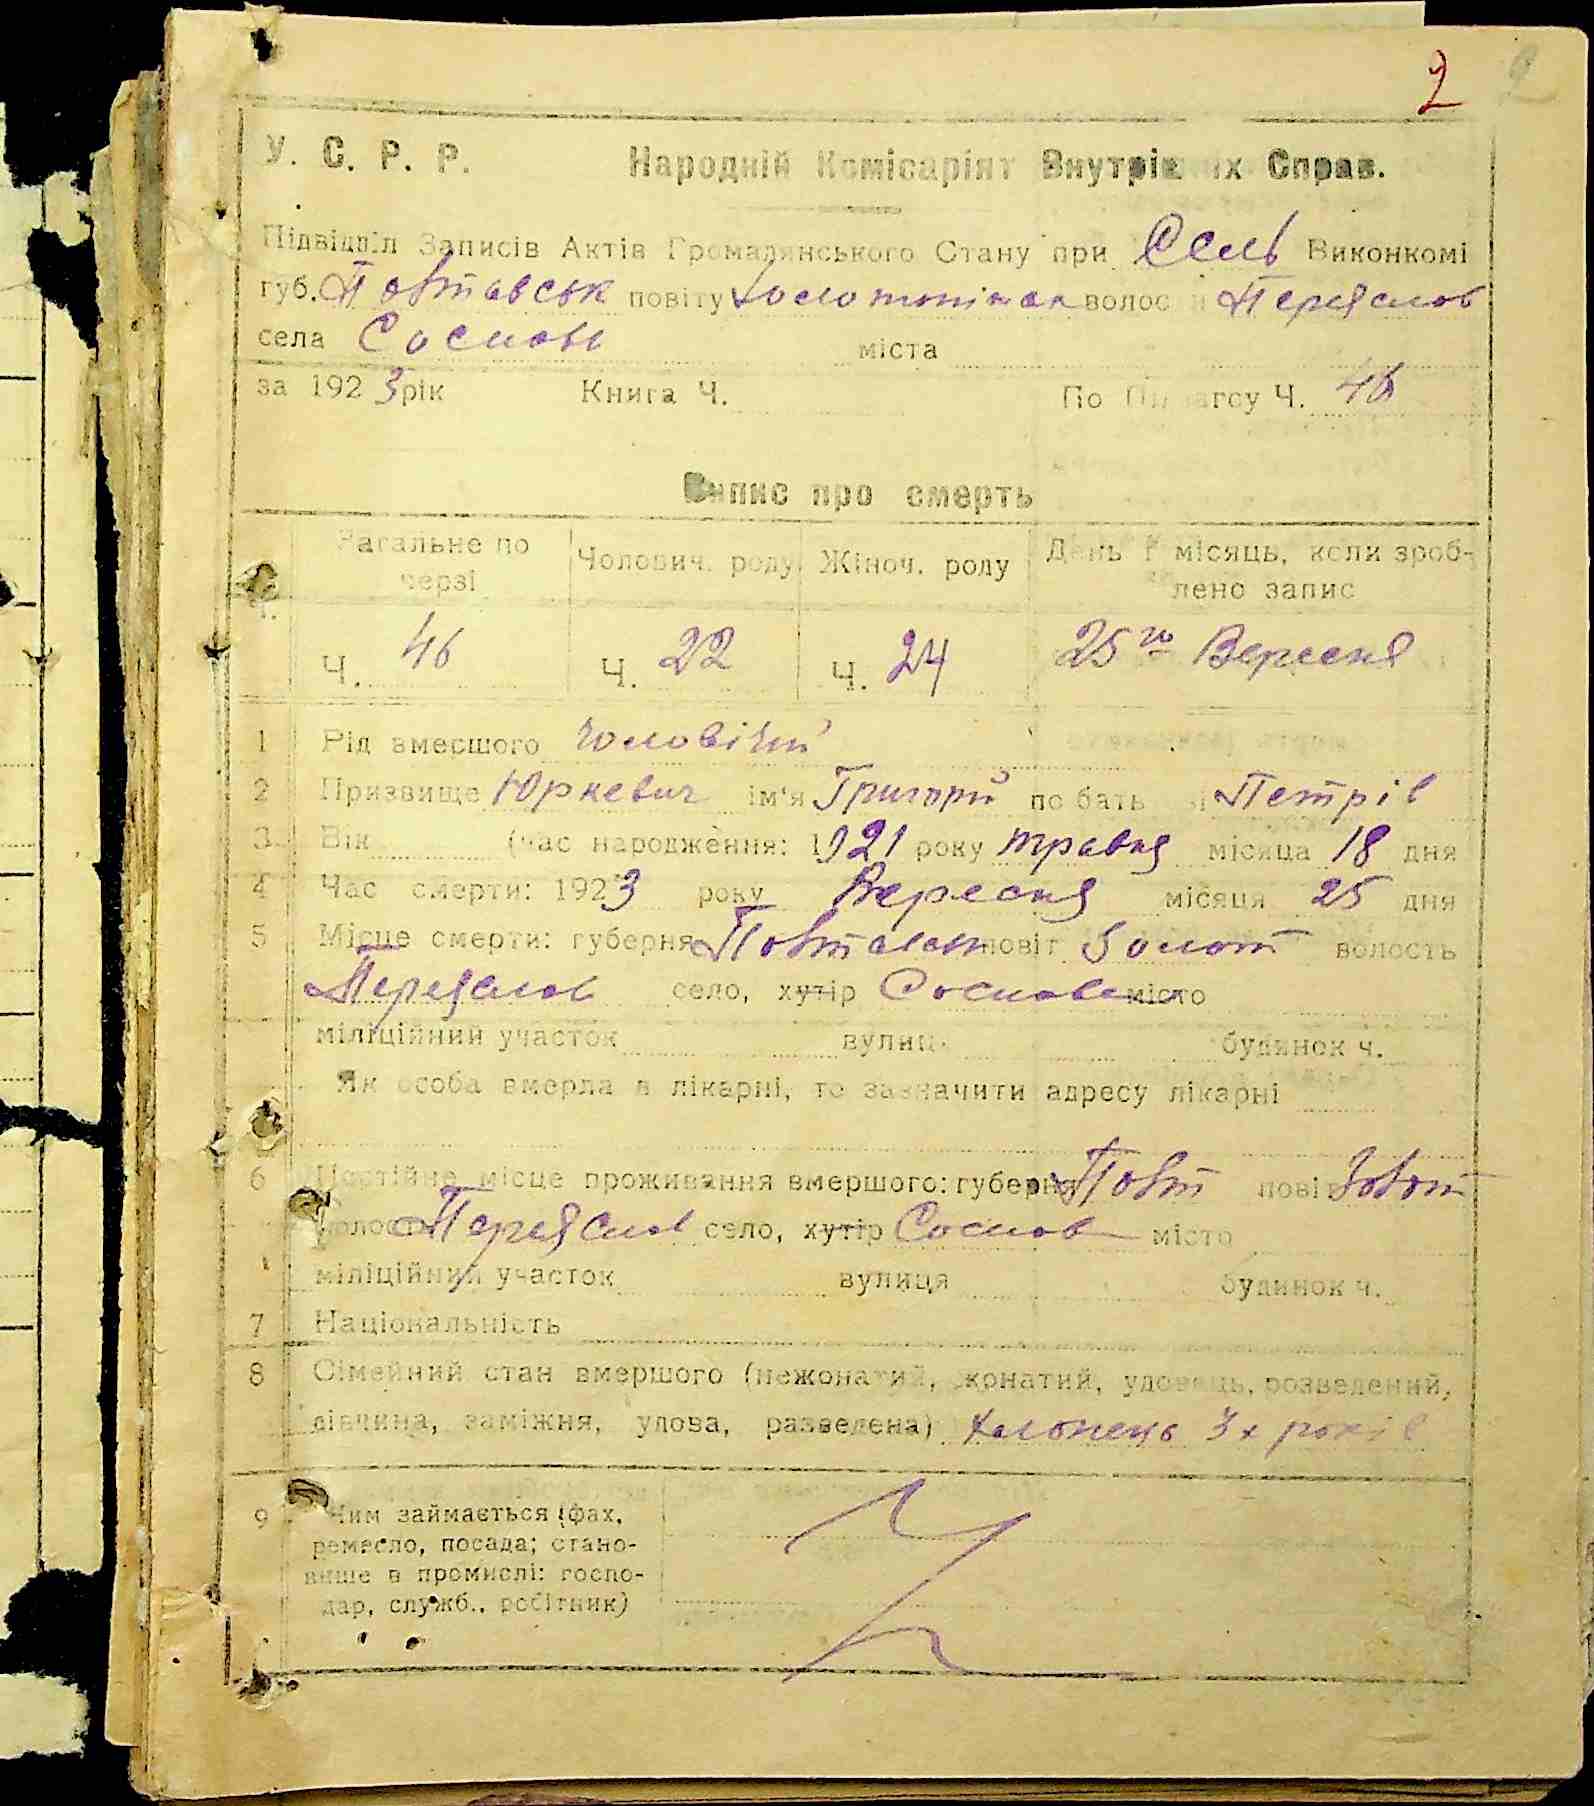 2 2
У. С. Р. Р. Народній Комісаріят Внутрішних Справ.
Підвідділ Записів Актів Громадянського Стану при Сель Виконкомі
губ. Полтавськ повіту Золотонішськ волости Переяслов
села Соснови міста
за 1923 рік Книга Ч. По Підзагсу Ч. 46
Випис про смерть
Загальне по Чолович. роду Жіноч. роду День і місяць, коли зроб-
черзі лено запис
Ч. 46 Ч. 22 Ч. 24 25го Вересня
1 Рід вмершого чоловічий
2 Призвище Юркевич ім'я Григорій по батькові Петрів
3 Вік (час народження: 1921 року травня місяца 18 дня
4 Час смерти: 1923 року Вересня місяця 25 дня
5 Місце смерти: губерня Полтавськ повіт Золот волость
Переяслов село, хутір Соснова місто
міліційний участок вулиц будинок ч.
Як особа вмерла в лікарні, то зазначити адресу лікарні
6 Постійне місце проживання вмершого: губерня Полт повіт Золот
волость Переяслов село, хутір Соснов місто
міліційний участок вулиця будинок ч.
7 Національність
8 Сімейний стан вмершого (нежонатий, жонатий, удовець, розведений,
дівчина, заміжня, удова, разведена) хлопець 3х років
9 Чим займається (фах,
ремесло, посада; стано-
вище в промислі: госпо-
дар, служб., робітник)